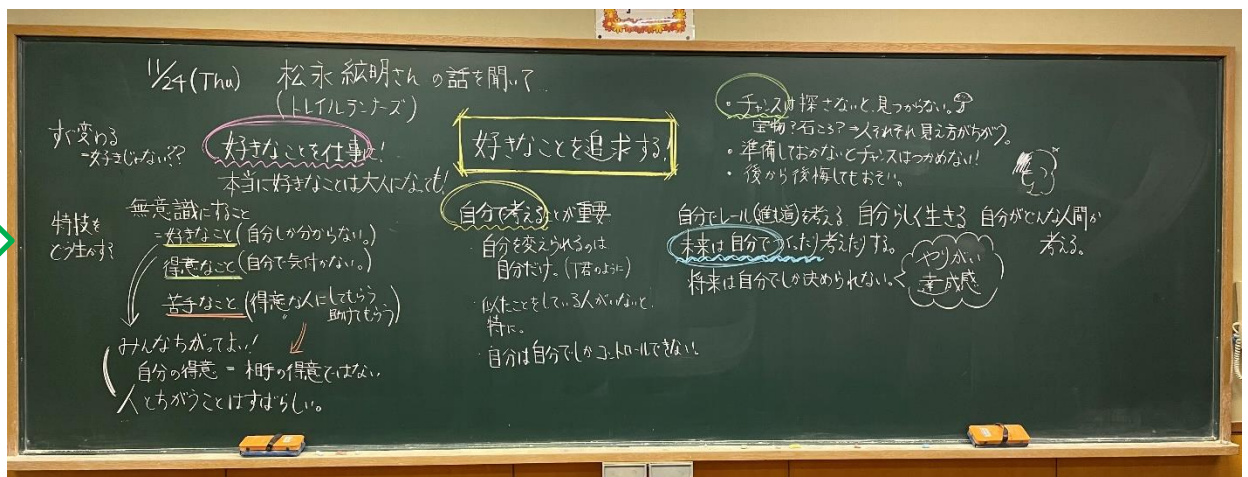 11/24(Thu) 松永紘明さんの話を聞いて
(トレイルランナーズ)
すぐ変わる
=好きじゃない??
好きなことを仕事に!
本当に好きなことは大人になっても!
特技を
どう生かす
無意識にすること
=好きなこと(自分しか分からない。)
得意なこと(自分で気付かない。)
苦手なこと(得意な人にしてもらう
助けてもらう)
みんなちがってよい!
自分の得意=相手の得意ではない
人とちがうことはすばらしい。
好きなことを追求する!
自分で考えることが重要
・自分を変えられるのは
自分だけ。(丁君のように)
・似たことをしている人がいないと、
特に。
・自分は自分でしかコントロールできない。
・チャンスは探さないと、見つからない。
宝物?石ころ?⇒人それぞれ見え方がちがう。
・準備しておかないとチャンスはつかめない!
・後から後悔してもおそい。
自分でレール(進む道)を考える 自分らしく生きる 自分がどんな人間か
考える。
未来は自分でったり考えたりする。
将来は自分でしか決められない。
やりがい
達成感